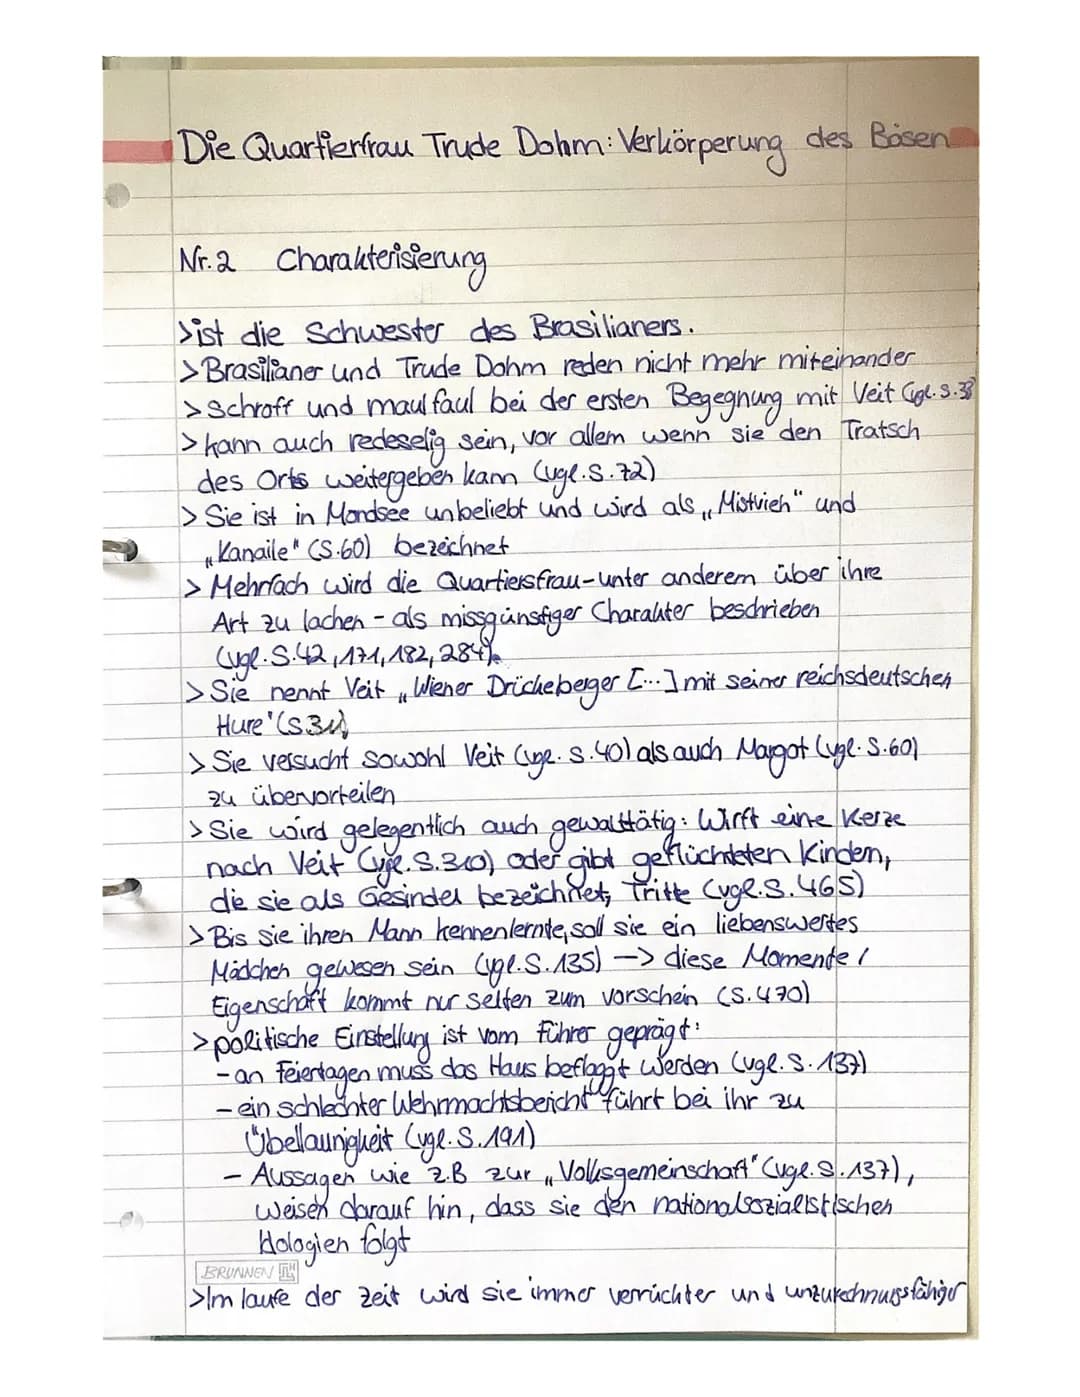 Die Quartierfrau Trude Dohm: Verkörperung des Bösen
Nr. 2 Charakterisierung
>ist die Schwester des Brasilianers.
> Brasilianer und Trude Dohm reden nicht mehr miteinander
> schroff und maulfaul bei der ersten Begegnung mit Veit (vgl. S. 38
> kann auch redeselig sein, vor allem wenn sie den Tratsch
des Orts weitergeben kann (vgl. S. 72)
> Sie ist in Mondsee unbeliebt und wird als „Mistvieh" und
„Kanaile" (S. 60) bezeichnet
> Mehrfach wird die Quartiersfrau - unter anderem über ihre
Art zu lachen - als missgünstiger Charakter beschrieben
(vgl. S. 42, 171, 182, 284).
> Sie nennt Veit „Wiener Drückeberger [...] mit seiner reichsdeutschen
Hure' (S.
> Sie versucht sowohl Veit (vgl. S. 40) als auch Margot (vgl. S. 60)
zu übervorteilen
> Sie wird gelegentlich auch gewalttätig: Wirft eine Kerze
nach Veit (vgl. S. 310) oder gibt geflüchteten Kindern,
die sie als Gesindel bezeichnet, Tritte (vgl. S. 465)
> Bis sie ihren Mann kennenlernte, soll sie ein liebenswertes
Mädchen gewesen sein (vgl. S. 135) —> diese Momente /
Eigenschaft kommt nur selten zum vorschein (S. 470)
> politische Einstellung ist vom Führer geprägt:
- an Feiertagen muss das Haus beflaggt werden (vgl. S. 137)
- ein schlechter Wehrmachtsbericht führt bei ihr zu
Übellaunigkeit (vgl. S. 191)
- Aussagen wie z.B zur „Volksgemeinschaft" (vgl. S. 137),
weisen darauf hin, dass sie den nationalsozialistischen
Idologien folgt
BRUNNEN
>Im laufe der Zeit wird sie immer verrückter und unzurechnungsfähiger